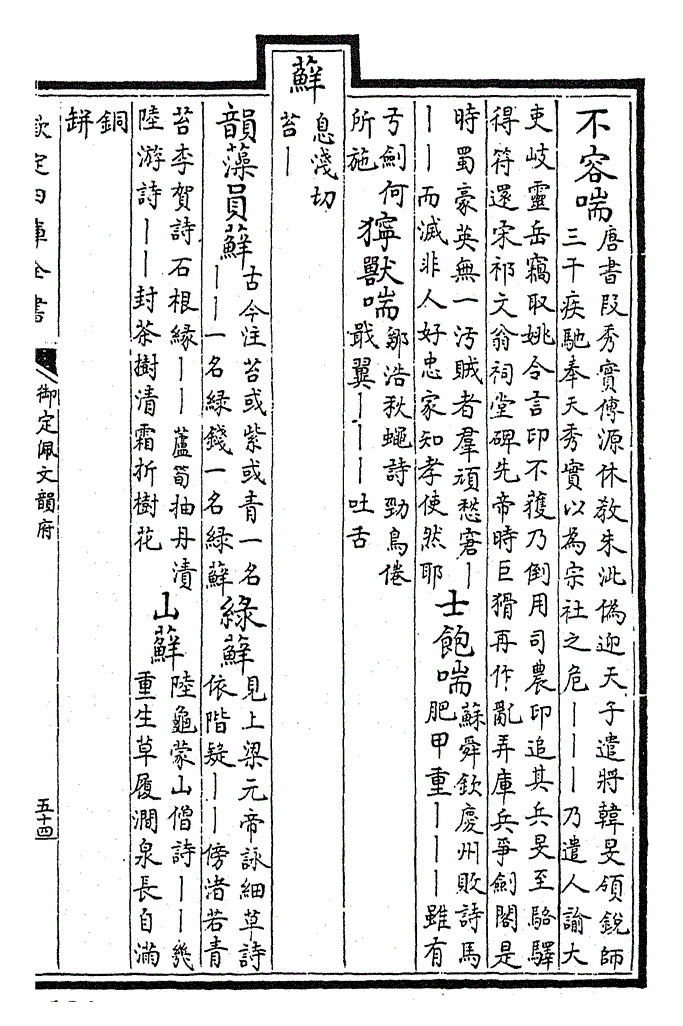 不容喘
唐書段秀實傳源休教朱泚偽迎天子遣將韓旻領銳師
三千疾馳奉天秀實以為宗社之危丨丨丨乃遣人諭大
吏岐靈岳竊取姚令言印不獲乃倒用司農印追其兵旻至駱驛
得符還宋祁文翁祠堂碑先帝時巨猾再作亂弄庫兵爭劍閣是
時蜀豪英無一汚賊者羣頑愁窘丨
丨丨而滅非人好忠家知孝使然耶
士飽喘
蘇舜欽慶州敗詩馬
肥甲重丨丨丨雖有
弓劍何
所施
獰獸喘
鄒浩秋蠅詩勁鳥倦
戢翼丨丨丨吐舌
蘚
息淺切
苔丨
韻藻員蘚
古今注苔或紫或青一名
丨丨一名綠錢一名綠蘚
綠蘚
見上梁元帝詠細草詩
依階疑丨丨傍渚若青
苔李賀詩石根緣丨丨蘆筍抽丹漬
陸游詩丨丨封茶樹清霜折樹花
山蘚
陸龜蒙山僧詩丨丨幾
重生草履澗泉長自滿
銅
缾
欽定四庫全書
御定佩文韻府
五十四